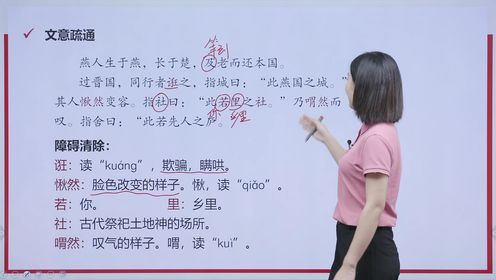 文意疏通
等到
燕人生于燕，长于楚，及老而还本国。
过晋国，同行者诳之，指城曰：“此燕国之城。”
其人愀然变容。指社曰：“此若里之社。”乃喟然而
叹。指舍曰：“此若先人之庐。
乡里
障碍清除：
诳：读“kuáng”，欺骗，瞒哄。
愀然：脸色改变的样子。愀，读“qiǎo”。
若：你。 里：乡里。
社：古代祭祀土地神的场所。
喟然：叹气的样子。喟，读“kuì”。